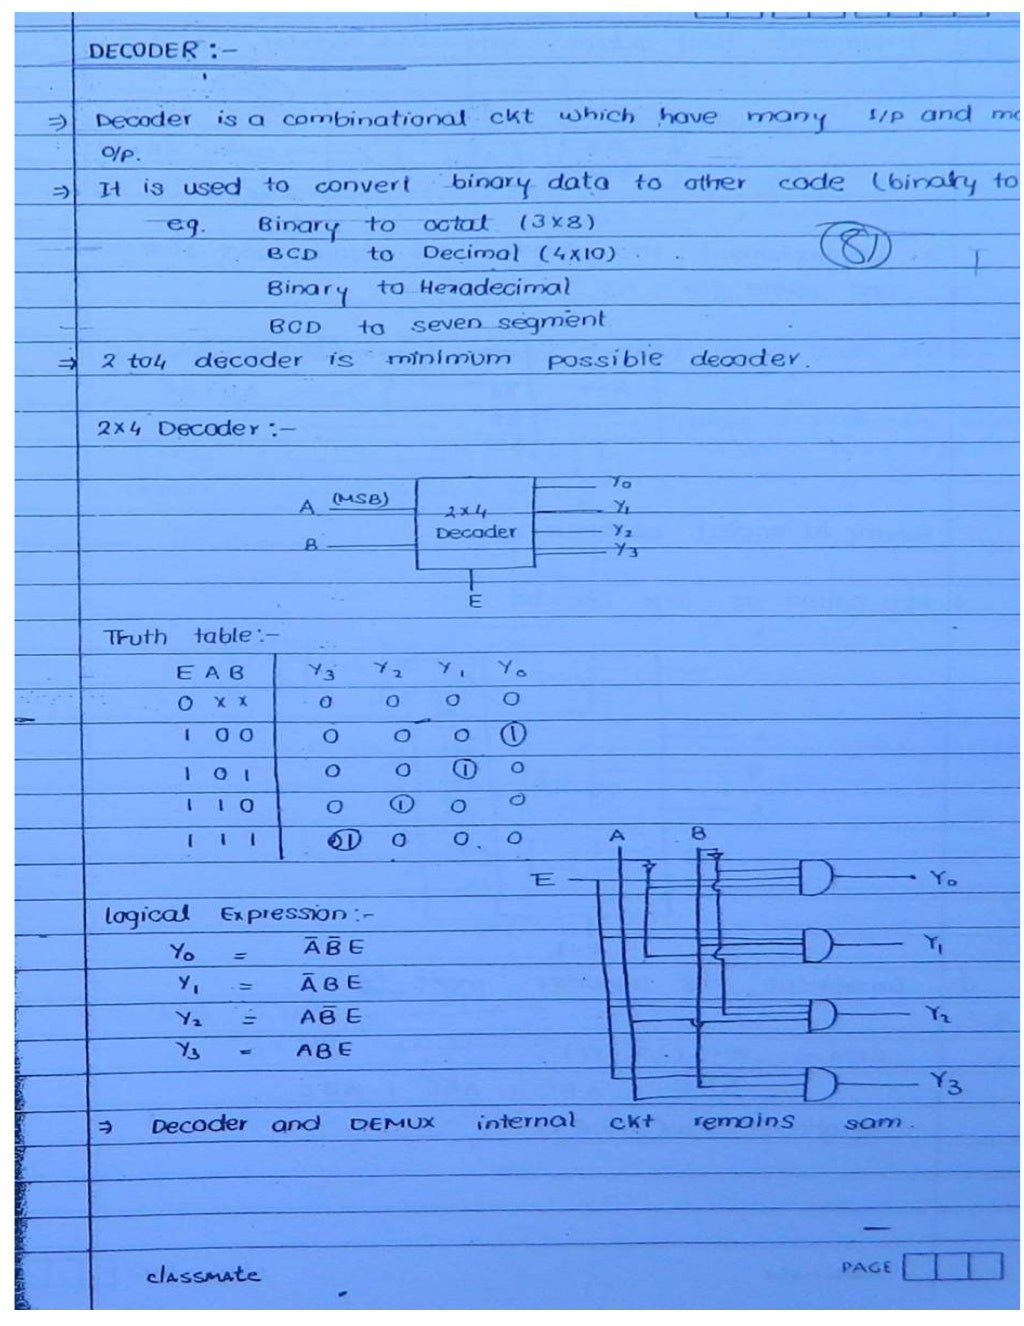 DECODER :-
⇒ Decoder is a combinational ckt which have many I/P and
O/P.
⇒ It is used to convert binary data to other code (binary to
eg. Binary to octal (3×8)
BCD to Decimal (4×10)
81
Binary to Hexadecimal
BCD to seven segment
⇒ 2 to4 decoder is minimum possible decoder.
2×4 Decoder :-
A (MSB) 2×4 Decoder Y0
Y1
B Y2
Y3
E
Truth table:-
E A B Y3 Y2 Y1 Y0
0 x x 0 0 0 0
1 0 0 0 0 0 1
1 0 1 0 0 1 0
1 1 0 0 1 0 0
1 1 1 1 0 0 0
A B
E Y0
Logical Expression:-
Y0 = ĀB̄E
Y1 = ĀBE
Y2 = AB̄E
Y3 = ABE
Y1
Y2
Y3
⇒ Decoder and DEMUX internal ckt remains sam.
classmate
PAGE